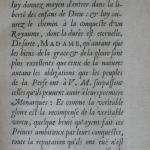 luy donnez moyen d'entrer dans la
liberté des enfans de Dieu ; & luy ou-
urez le chemin à la conqueste d'un
Royaume, dont la durée est eternelle,
De sorte, MADAME, qu'autant que
les biens de la grace & de la gloire sont
plus excellens que ceux de la nature:
autant les obligations que les peuples
de la Perse ont à V. M. surpassent
celles qu'ils peuuent auoir à leurs propres
Monarques : Et comme la veritable
gloire est la recompense de la veritable
vertu, quelque bruit qu'ayent fait ces
Princes ambitieux par leurs conquestes,
toute la reputation qu'ils ont euë n'est